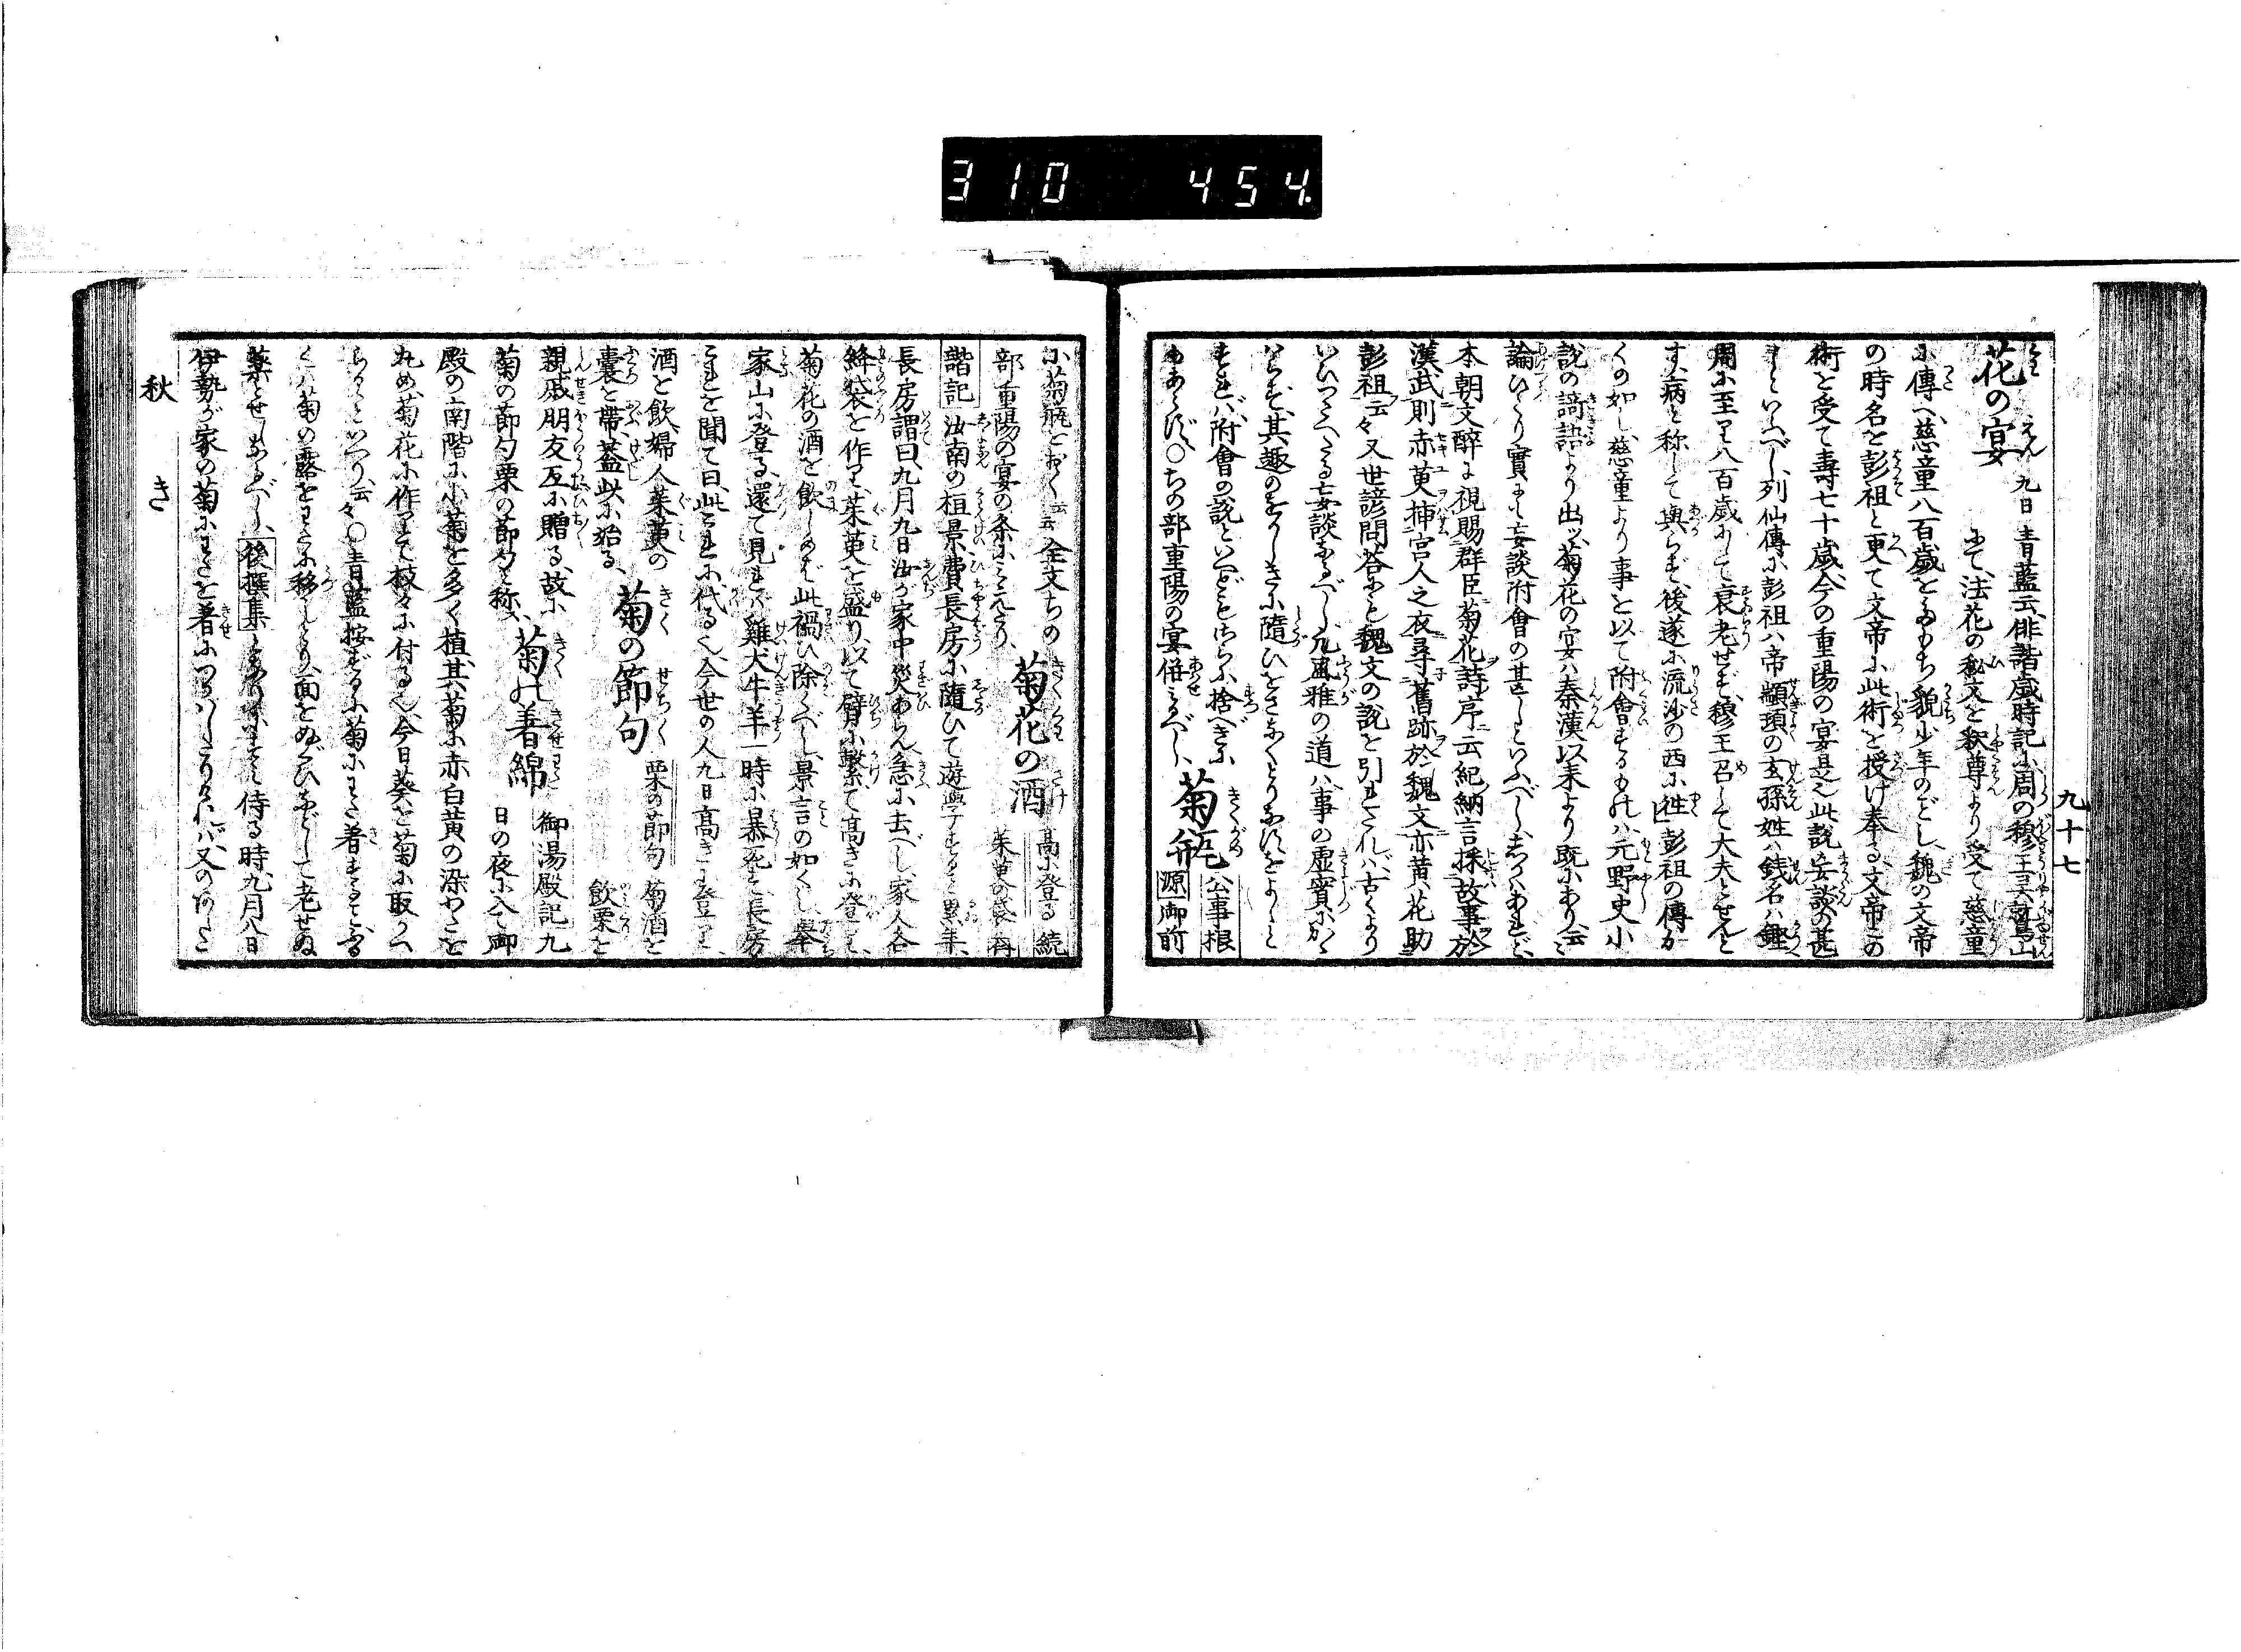 310 454.
九十七
花の宴 九日 青藍云俳諧歳時記に周の穆王霊鷲山
にて法花の秘文を釈尊より受て慈童
に傳へ慈童八百歳をたもち貌少年のごとし魏の文帝
の時名を彭祖と更て文帝に此術を授け奉る文帝この
術を受て壽七十歳今の重陽の宴是也此説妄談の甚
しといふべし列仙傳に彭祖ハ帝顓頊の玄孫姓ハ銭名ハ鏗
周に至て八百歳にして衰老せず穆王召して大夫とせんと
す病と称して與らず後遂に流沙の西に徃彭祖の傳か
くの如し慈童より事を以て附會するものハ元野史小
説の謌誌より出ッ菊花の宴ハ秦漢以来より既にあり云々
論ひたり實にも妄談附會の甚しといふべししかハあれど
本朝文酔に視賜群臣菊花詩序云紀納言採故事於
漢武則赤萸挿宮人之衣尋舊跡於魏文亦黄花助
彭祖云々又世諺問答にも魏文の説を引れたれバ古くより
いひつたへたる妄談なるべし凡風雅の道ハ事の虚實にかゝ
はらず其趣のをかしきに隨ひをさなくとりなすをよしと
すれバ附會の説といへどもさらに捨べきに
もあらず○ちの部重陽の宴併せ見るべし
菊瓶 公事根源 御前
に菊瓶をおく云云 全文ちの
部重陽の宴の条に見えたり
菊花の酒 高に登る 茱萸の袋 続齊
諧記 汝南の桓景費長房に隨ひて遊學すること累年
長房謂曰九月九日汝が家中災あらん急に去べし家人各
絳袋を作て茱萸を盛り以て臂に繋て高きに登て
菊花の酒を飲しめば此禍ひ除くべし景言の如くし挙
家山に登る還て見れバ雞犬牛羊一時に暴死す長房
これを聞て曰此これに代る也今世の人九日高きに登て
酒を飲婦人茱萸の
嚢を帯蓋此に始る
菊の節句 栗の節句 菊酒を
飲栗を
親戚朋友互に贈る故に
菊の節句栗の節句と称ス
菊の着綿 御湯殿記 九
日の夜に入て御
殿の南階に小菊を多く植其菊に赤白黄の染わたを
丸め菊花に作りて枝々に付る也今日葵を菊に取かへ
らるゝといへり云々○青藍按ずるに菊にわた着すること
くハ菊の露をわたに移しとり面をぬぐひなどして老せぬ
薬とせしなるべし後撰集 となりにすみ侍る時九月八日
伊勢が家の菊にわたを着につかハしたりけれバ又のあした
秋 き